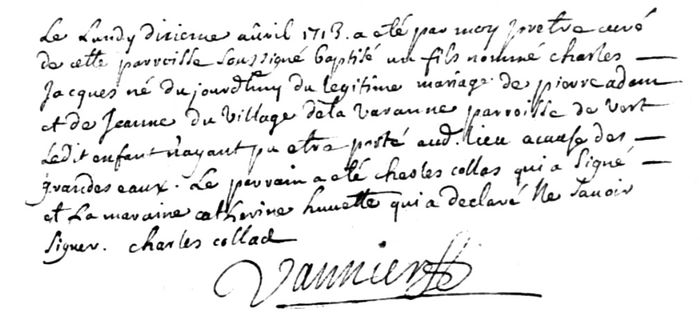 Le Lundy dixieme avril 1713. a eté par moy pretre curé
de cette parroisse soussigné baptisé un fils nommé charles
Jacques né du jourd'huy du legitime mariage de pierre adam
et de Jeanne du village dela varanne parroisse de vert
Ledit enfant n'ayant pu etre porté aud. lieu acause des
grandes eaux. Le parrain a eté charles collas qui a signé
et La maraine catherine huuette qui a declaré Ne savoir
signer. charles collad
Vannier